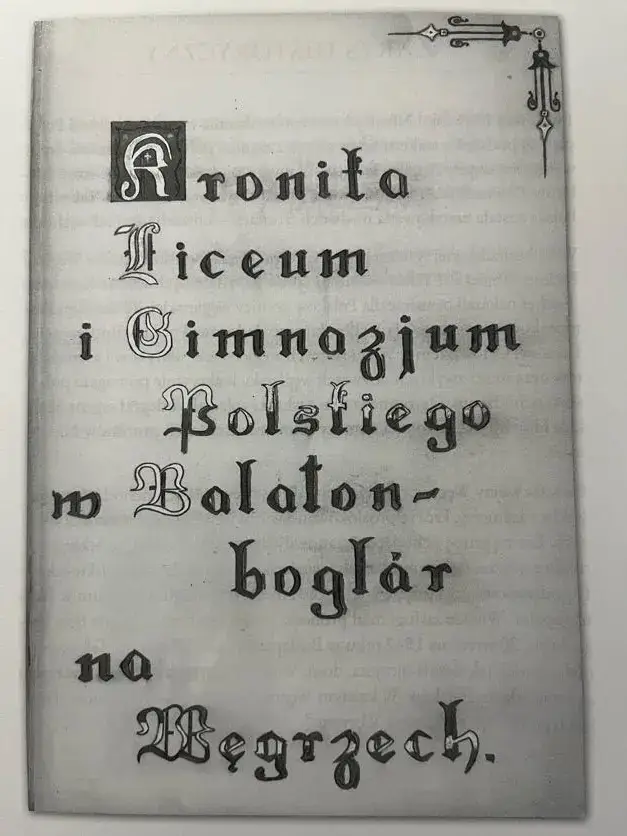 Kronika
Liceum
i Gimnazjum
Polskiego
w Balaton-
boglár
na
Węgrzech.